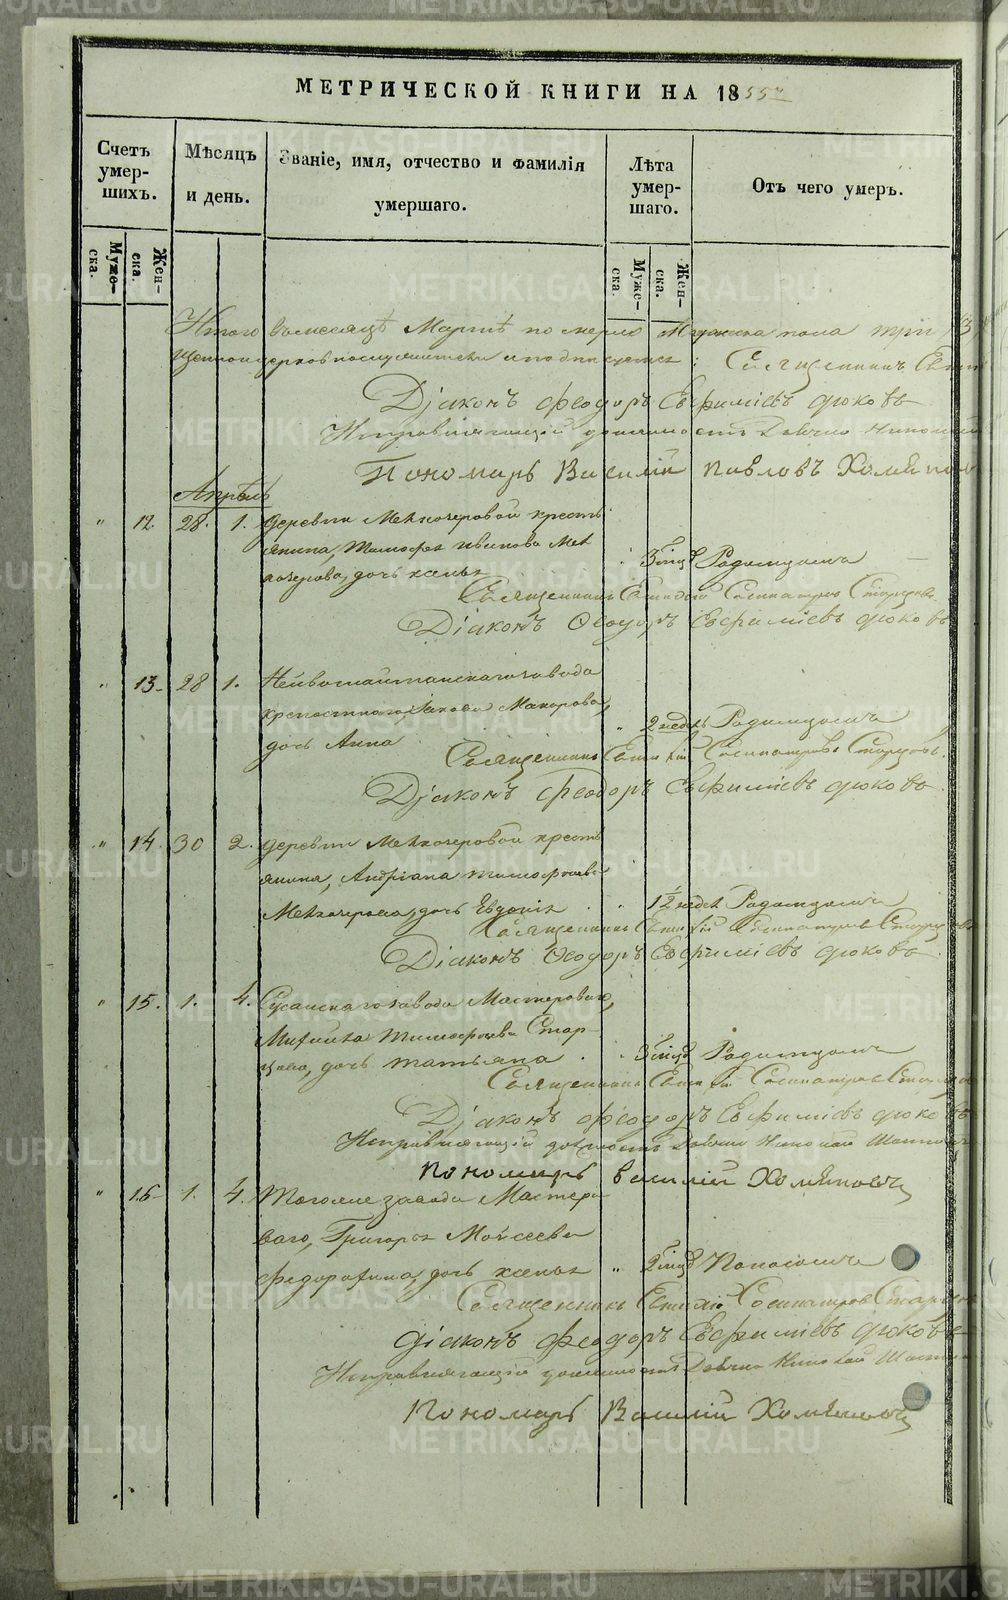 МЕТРИЧЕСКОЙ КНИГИ НА 1855
Счетъ умер-шихъ.
Муже-ска.
Жен-ска.
Мѣсяцъ и день.
Званіе, имя, отчество и фамилія умершаго.
Лѣта умер-шаго.
Муже-ска.
Жен-ска.
Отъ чего умеръ.
Итого въ месяцѣ Мартѣ померло Мужеска пола три 3
Священникъ
Діаконъ Феодоръ Евфиміевъ Дюковъ
Исправляющій должность Дьячка Николай
Пономарь Василій Павловъ Хомяковъ
Апрѣль
" 12. 28. 1. деревни Мелкозеровой кресть
янина, Тимофея Иванова Мел
козерова, дочь Ксенья " 3 мѣц Родимцомъ
Священникъ Сосипатровъ Старцовъ
Діаконъ Феодоръ Евфиміевъ Дюковъ
" 13. 28 1. Нейвошайтанскаго завода
крепостнаго, Якова Макарова,
дочь Анна " 2 недѣль Родимцомъ
Священникъ Сосипатровъ Старцовъ
Діаконъ Феодоръ Евфиміевъ Дюковъ
" 14. 30 2. деревни Мелкозеровой кресть
янина, Андріана Тимофеева
Мелкозерова, дочь Евдокія " 1½ недѣл Родимцомъ
Священникъ Сосипатровъ Старцовъ
Діаконъ Феодоръ Евфиміевъ Дюковъ
" 15. 1. 4. Сусанскаго завода Мастероваго,
Михаила Тимофеева Стар-
цова, дочь Татьяна " 3 мѣц Родимцомъ
Священникъ Сосипатровъ Старцовъ
Діаконъ Феодоръ Евфиміевъ Дюковъ
Исправляющій должность Дьячка Николай
Пономарь Василій Хомяковъ
" 16. 1. 4. Тогоже завода Мастеро
ваго, Григорья Мойсеева
Федорахина, дочь Ксенья " 2 мѣц Поносомъ
Священникъ Сосипатровъ Старцовъ
Діаконъ Феодоръ Евфиміевъ Дюковъ
Исправляющій должность Дьячка Николай
Пономарь Василій Хомяковъ
METRIKI.GASO-URAL.RU